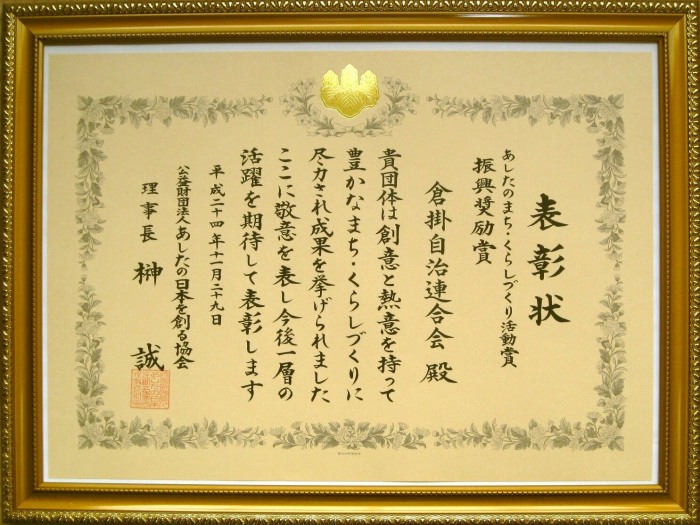 表彰状
あしたのまち・くらしづくり活動賞
振興奨励賞
倉掛自治連合会 殿
貴団体は創意と熱意を持って
豊かなまち・くらしづくりに
尽力され成果を挙げられました
ここに敬意を表し今後一層の
活躍を期待して表彰します
平成二十四年十一月二十九日
公益財団法人 あしたの日本を創る協会
理事長 榊 誠